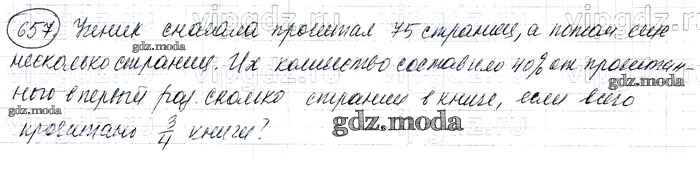 657 Ученик сначала прочитал 75 страниц, а потом еще
gdz.moda
несколько страниц. Их количество составило 40% от прочитан-
gdz.moda
ного в первый раз. сколько страниц в книге, если всего
gdz.moda
прочитано 3/4 книги?